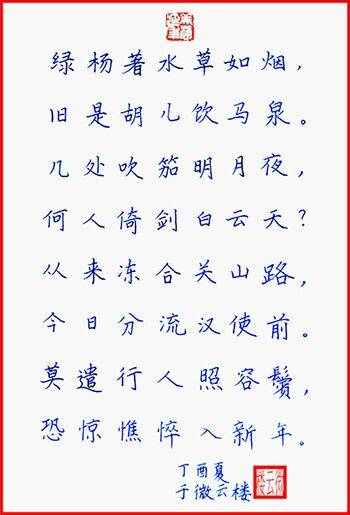 绿杨著水草如烟，
旧是胡儿饮马泉。
几处吹笳明月夜，
何人倚剑白云天？
从来冻合关山路，
今日分流汉使前。
莫遣行人照容鬓，
恐惊憔悴入新年。
丁酉夏
于微云楼